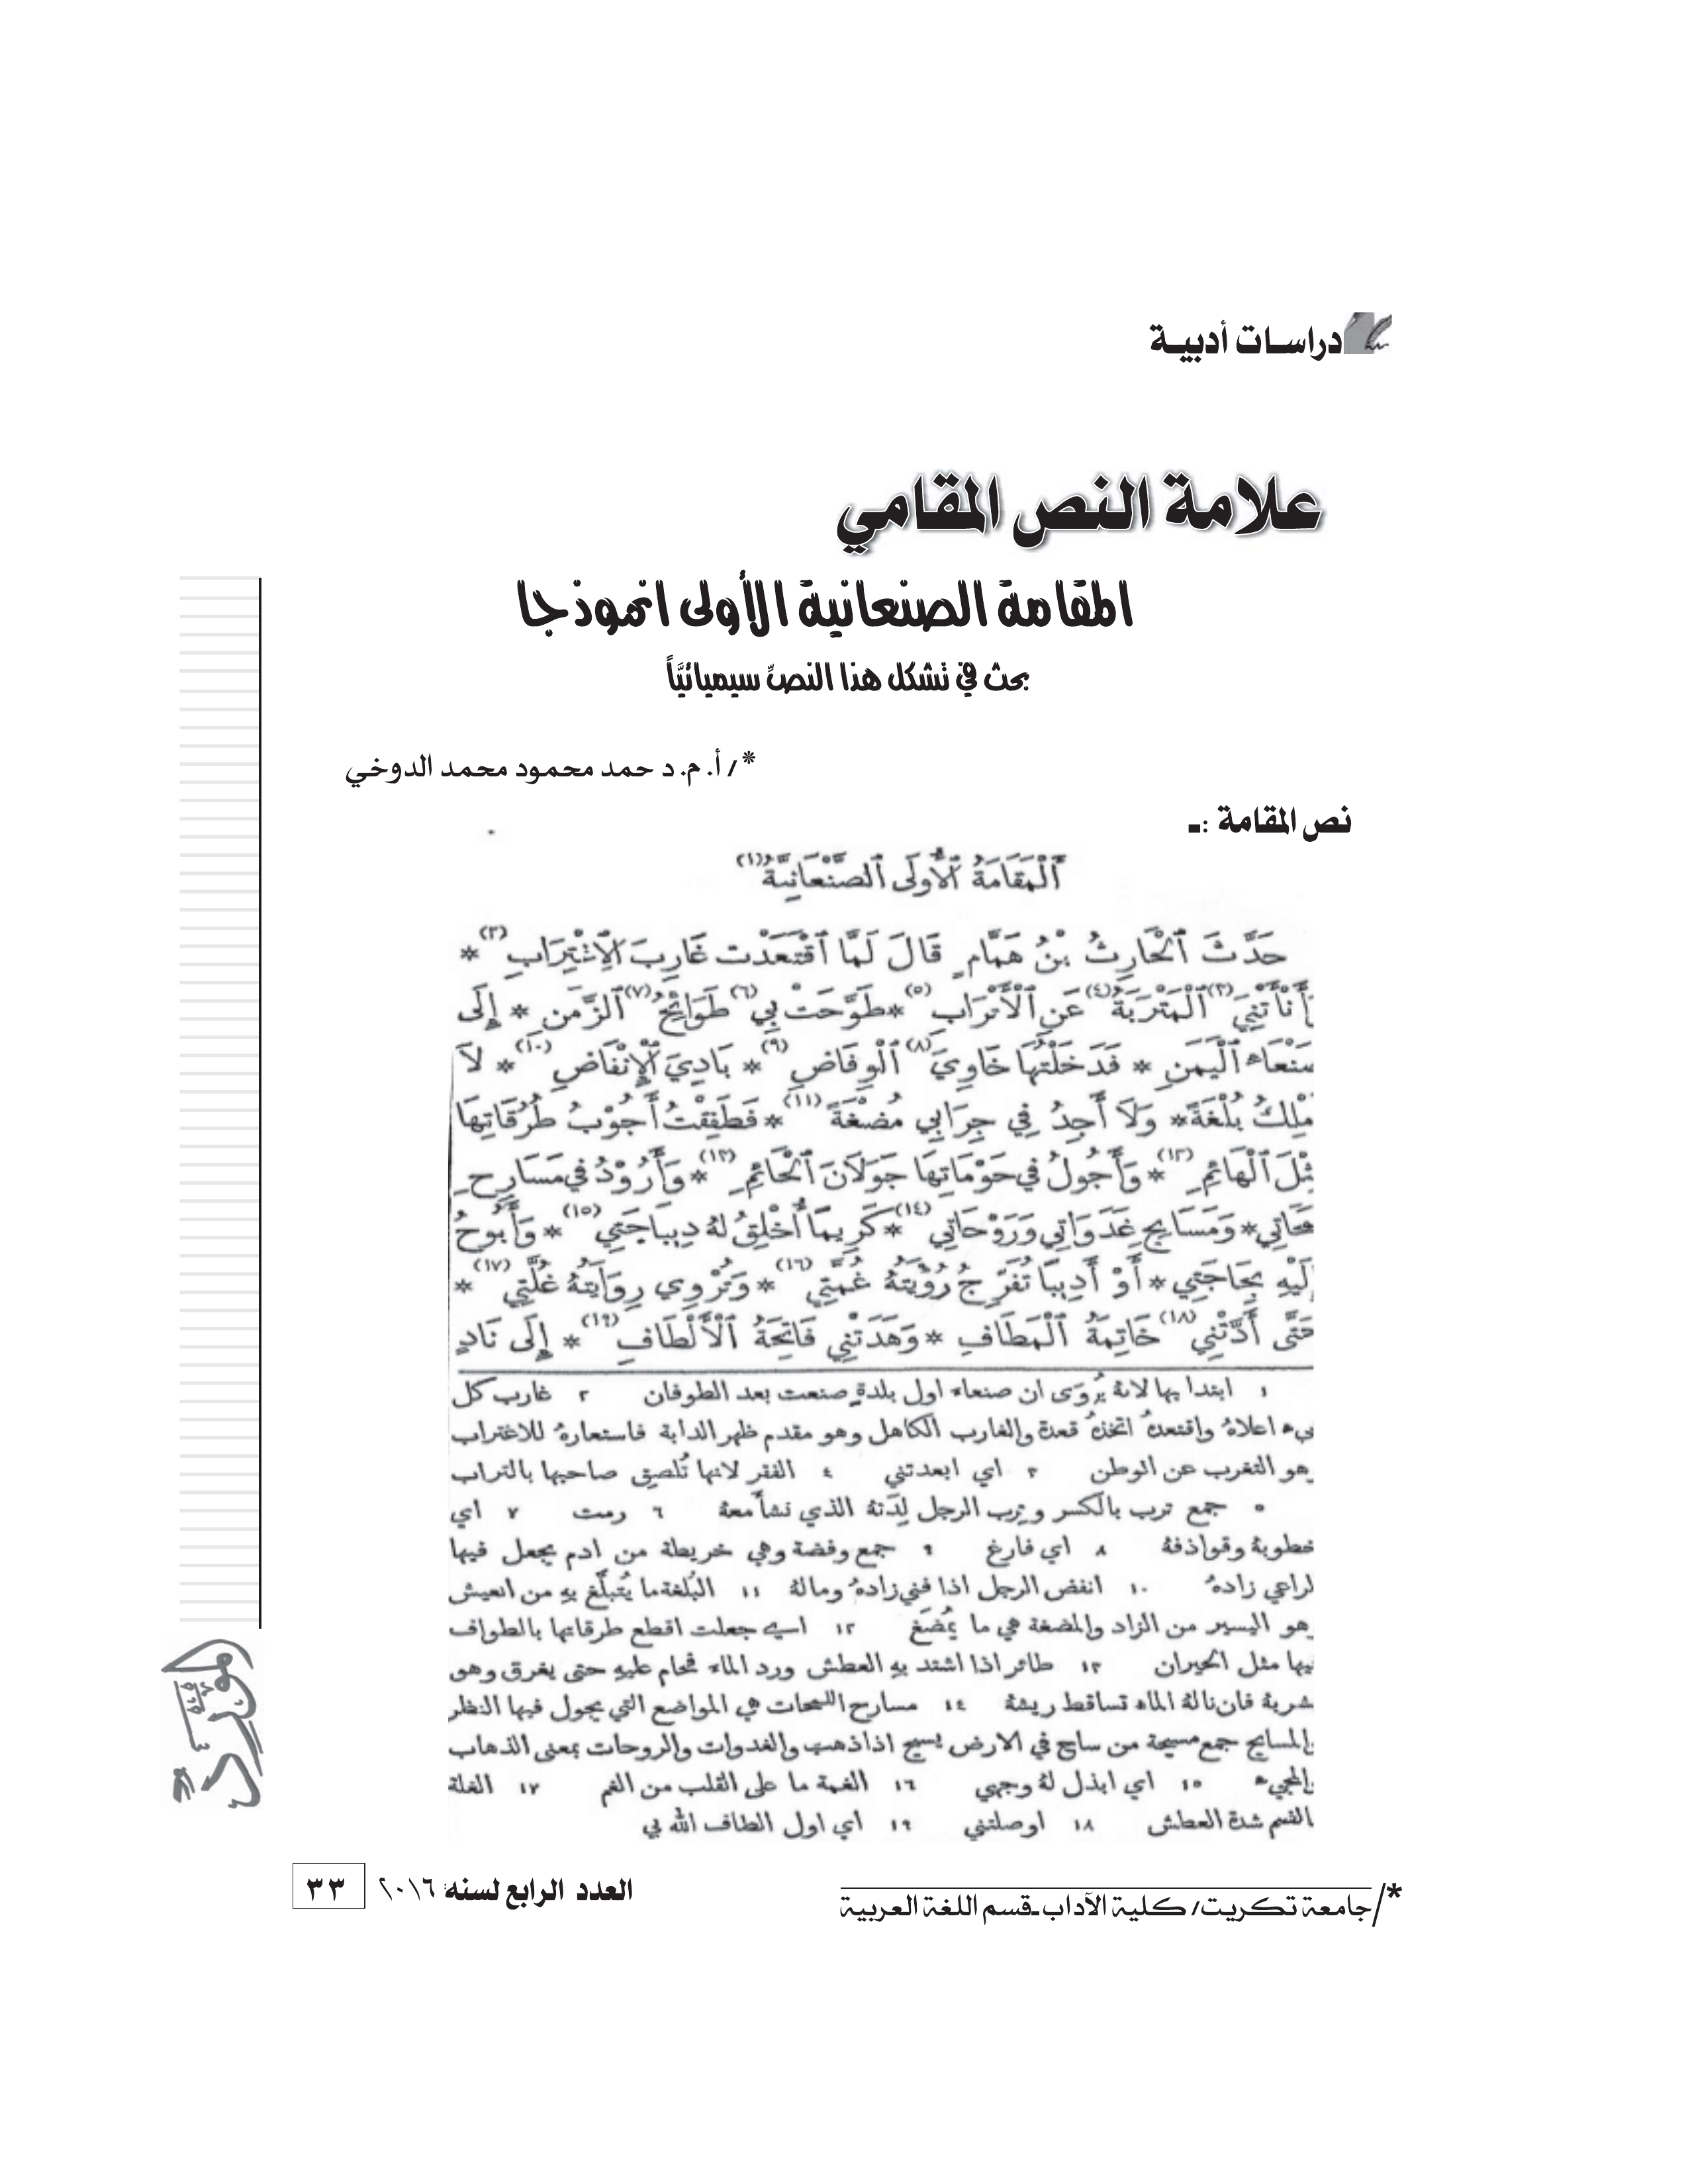 دراسـات أدبيـة
علامة النص المقامي
المقامة الصنعانية الأولى انموذجا
بحث في تشكل هذا النصِّ سيميائيَّاً
*/أ. م. د حمد محمود محمد الدوخي
نص المقامة :ـ
اَلْمَقَامَةُ الْأُولَى اَلصَّنْعَانِيَّةُ (١)
حَدَّثَ اَلْحَارِثُ بْنُ هَمَّامٍ قَالَ لَمَّا اَقْتَعَدْت غَارِبَ الْاِغْتِرَابِ (٢) *
أَنْأَتْنِي (٣) اَلْمَتْرَبَةُ (٤) عَنِ الْأَتْرَابِ (٥) * طَوَّحَتْ بِي (٦) طَوَائِحُ (٧) اَلزَّمَنِ * إِلَى
صَنْعَاءِ اَلْيَمَنِ * فَدَخَلْتُهَا خَاوِيَ (٨) اَلْوِفَاضِ (٩) * بَادِيَ الْإِنْفَاضِ (١٠) * لَا
أَمْلِكُ بُلْغَةً * وَلَا أَجِدُ فِي جِرَابِي مُضْغَةً (١١) * فَطَفِقْتُ أَجُوْبُ طُرُقَاتِهَا
مِثْلَ اَلْهَائِمِ (١٢) * وَأَجُولُ فِي حَوْمَاتِهَا جَوَلَانَ اَلْحَائِمِ (١٣) * وَأَرُوْدُ فِي مَسَارِحِ
لَمَحَاتِي * وَمَسَايِحِ غَدَوَاتِي وَرَوْحَاتِي (١٤) * كَرِيمًا أُخْلِقُ لَهُ دِيبَاجَتِي (١٥) * وَأَبُوحُ
إِلَيْهِ بِحَاجَتِي * أَوْ أَدِيبًا تُفَرِّجُ رُؤْيَتُهُ غُمَّتِي (١٦) * وَتُرْوِي رِوَايَتُهُ غُلَّتِي (١٧) *
حَتَّى أَدَّتْنِي (١٨) خَاتِمَةُ اَلْمَطَافِ * وَهَدَتْنِي فَاتِحَةُ اَلْأَلْطَافِ (١٩) * إِلَى نَادٍ
١ ابتدا بها لانهُ يُرْوَى ان صنعاء اول بلدةٍ صنعت بعد الطوفان ٢ غارب كل
شيء اعلاهُ واقتعدهُ اتخذهُ قعدة والغارب الكاهل وهو مقدم ظهر الدابة فاستعارهُ للاغتراب
وهو التغرب عن الوطن ٣ اي ابعدتني ٤ الفقر لانها تُلصِق صاحبها بالتراب
٥ جمع ترب بالكسر وتِرب الرجل لِدَتهُ الذي نشأ معهُ ٦ رمت ٧ اي
خطوبهُ وقواذفهُ ٨ اي فارغ ٩ جمع وفضة وهي خريطة من ادم يجعل فيها
الراعي زادهُ ١٠ انفض الرجل اذا فني زادهُ ومالهُ ١١ البُلغة ما يُتبلَّغ بهِ من العيش
وهو اليسير من الزاد والمضغة هي ما يُمضَغ ١٢ اي جعلت اقطع طرقاتها بالطواف
فيها مثل الحيران ١٣ طائر اذا اشتد بهِ العطش ورد الماء فحام عليهِ حتى يغرق وهو
يشربهُ فان نالهُ الماء تساقط ريشهُ ١٤ مسارح اللمحات هي المواضع التي يجول فيها النظر
والمسايح جمع مسيحة من ساح في الارض يسيح اذا ذهب والغدوات والروحات بمعنى الذهاب
والمجيء ١٥ اي ابذل لهُ وجهي ١٦ الغمة ما على القلب من الغم ١٧ الغلة
بالضم شدة العطش ١٨ اوصلتني ١٩ اي اول الطاف الله بي
*/جامعة تكريت/ كلية الآداب ـ قسم اللغة العربية
العدد الرابع لسنة ٢٠١٦
٣٣